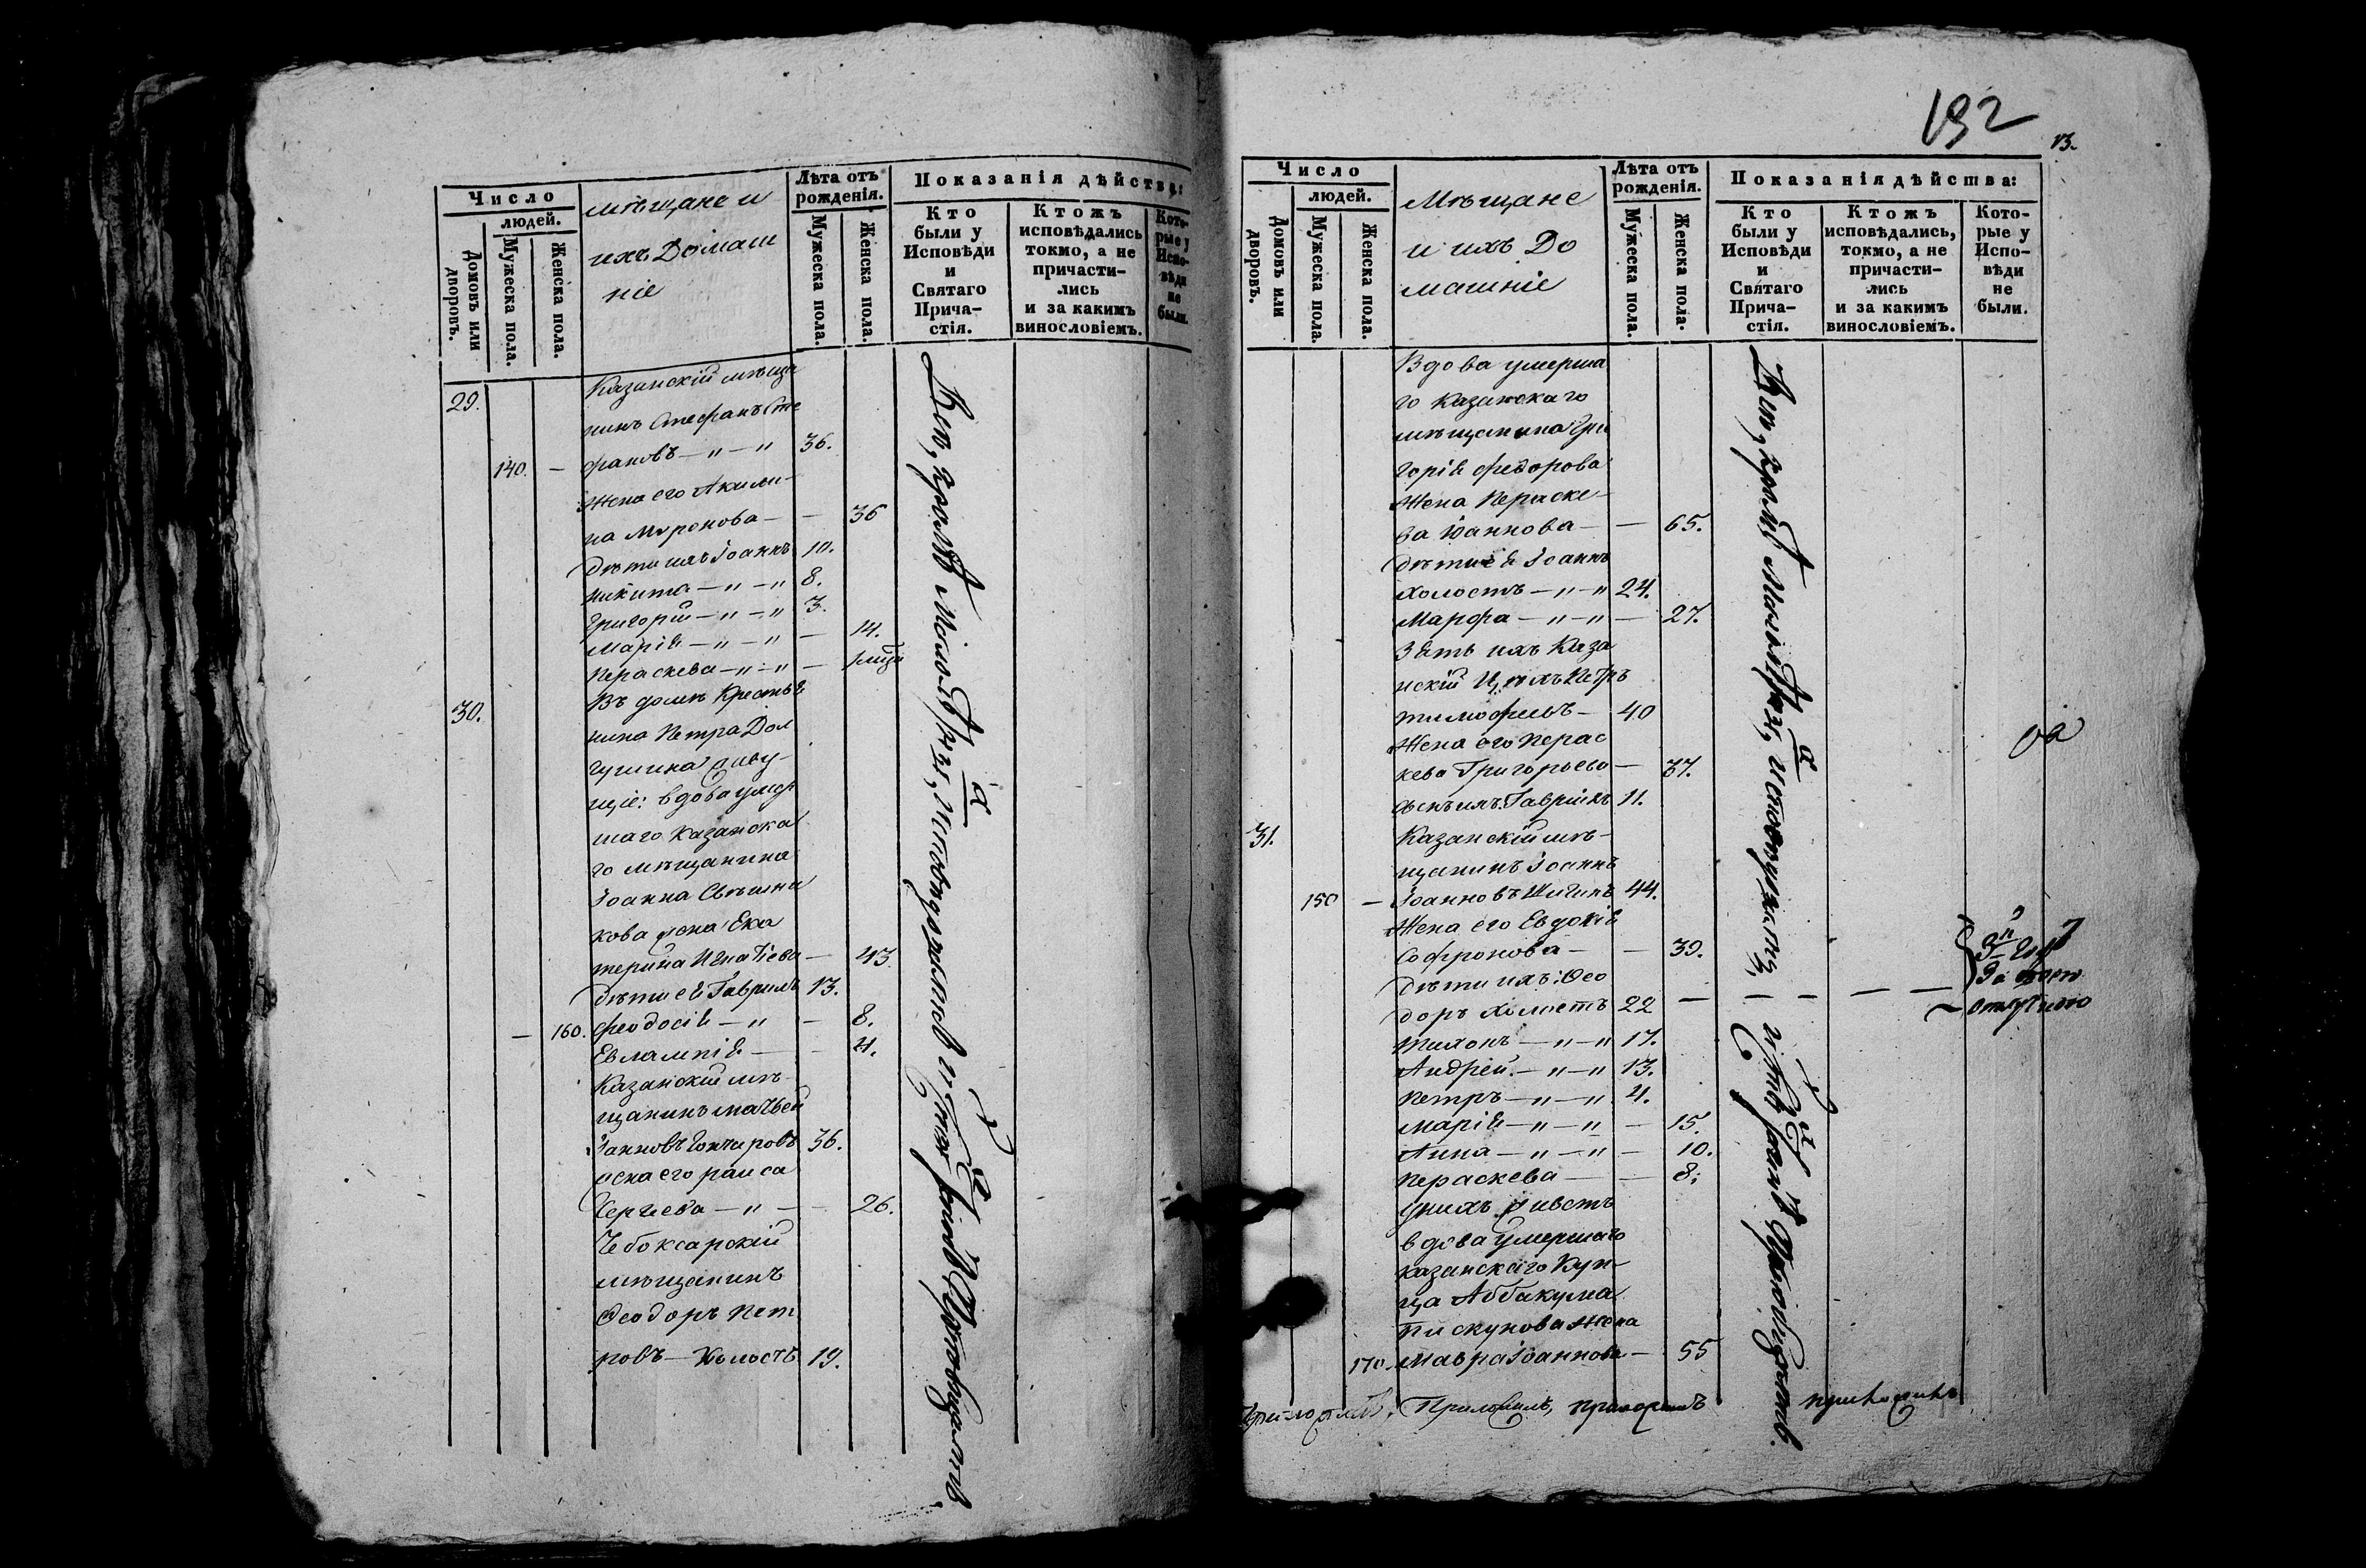 Число
людей.
Домовъ или дворовъ.
Мужеска пола.
Женска пола.
мѣщане и
ихъ Домаш
ніе
Лѣта отъ рожденія.
Мужеска пола.
Женска пола.
Показанія дѣйства:
Кто были у Исповѣди и Святаго Прича-стія.
Ктожъ исповѣдались токмо, а не причасти-лись и за какимъ винословіемъ.
Кото-рые у Испо-вѣди не были.
Казанскій мѣща
29. нинъ Стефанъ Сте
140. — фановъ — " — " 36.
Жена его Акили-
на Миронова — — 36
Дѣти ихъ Іоаннъ 10.
Никита — " — " 8.
Григорій — " — " 3.
Марія — " — " — 14.
Пераскева — " — " —
30. Въ домѣ Крестья
нина Петра Дол
гушина живу-
щіе: вдова умер
шаго Казанска
го мѣщанина
Іоанна Свѣшни
кова жена Ека
терина Игнатіева — 43.
Дѣти ея Гавріилъ 13.
— 160. Феодосія — " — 8.
Евлампія — — 4.
Казанскій мѣ-
щанинъ Матвей
Іанновъ Гончаровъ 36.
жена его раиса
Сергиева — " — — 26.
Чебоксарскій
мѣщанинъ
Феодоръ Пет
ровъ — Холостъ 19.
Всѣ, кромѣ Малолѣт
192
13.
Число
людей.
Домовъ или дворовъ.
Мужеска пола.
Женска пола.
Мѣщане
и ихъ До
машніе
Лѣта отъ рожденія.
Мужеска пола.
Женска пола.
Показанія дѣйства:
Кто были у Исповѣди и Святаго Прича-стія.
Ктожъ исповѣдались, токмо, а не причасти-лись и за какимъ винословіемъ.
Кото-рые у Испо-вѣди не были.
Вдова умерша
го Казанскаго
мѣщанина Гри
горія Федорова
Жена Пераске-
ва Іоаннова — — 65.
Дѣти ея Іоаннъ
холостъ — " — " 24.
Марфа — " — " — 27.
Зять ихъ Каза
нскій Петръ
Тимофеевъ — 40
Жена егоПерас
кева Григорьева — 37.
сынъ ихъ Гавріилъ 11.
31. Казанскій мѣ-
щанинъ Іоаннъ
150 — Іоанновъ 44.
Жена его Евдокія
Софронова — — 39.
Дѣти ихъ: Фео
доръ холостъ 22 — — — — —
Тихонъ — " — " 17.
Андрей. — " — " 13.
Петръ — " — " 4.
Марія — " — " — 15.
Анна — " — " — 10.
Пераскева — — 8.
У нихъ живетъ
вдова умершаго
Казанскаго Куп-
ца Аввакума
Пискунова жена
170. Мавра Іоаннова — 55
Всѣ, кромѣ Малолѣт